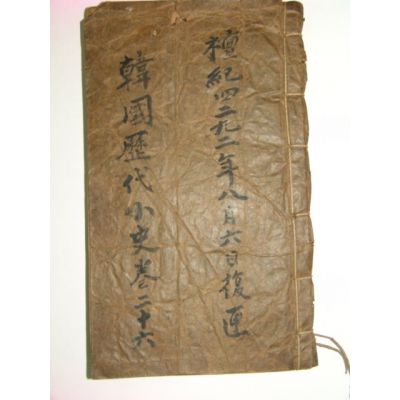 檀紀四二九二年八月六日復
韓國歷代小史卷二十六